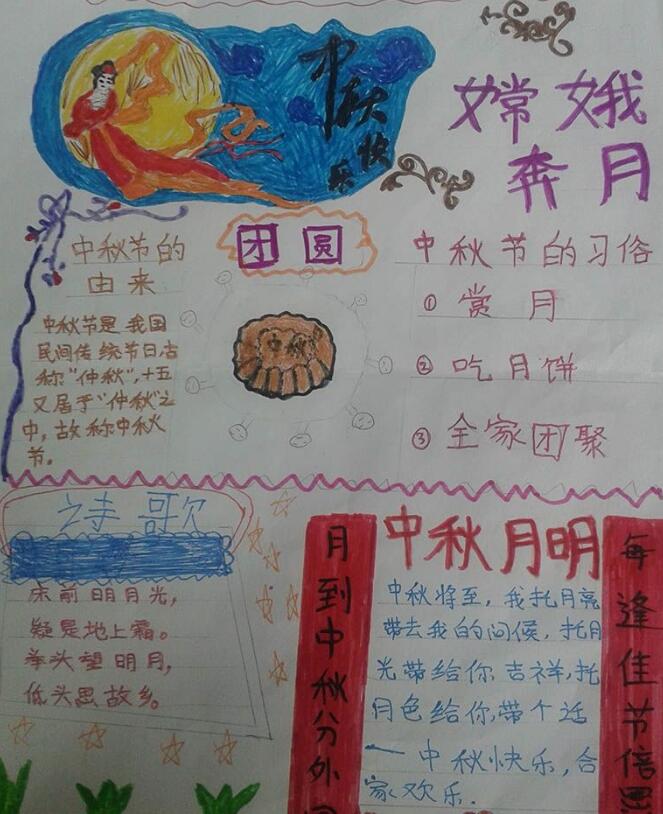 中秋
快
乐
嫦娥
奔月
中秋节的
由来
中秋节是我国
民间传统节日,古
称"仲秋",十五
又居于"仲秋"之
中,故称中秋
节。
团圆
中秋
中秋节的习俗
① 赏月
② 吃月饼
③ 全家团聚
诗歌
床前明月光,
疑是地上霜。
举头望明月,
低头思故乡。
月到中秋分外
中秋月明
中秋将至,我托月亮
带去我的问候,托月
光带给你吉祥,托
月色给你带个话
— 中秋快乐,合
家欢乐.
每逢佳节倍